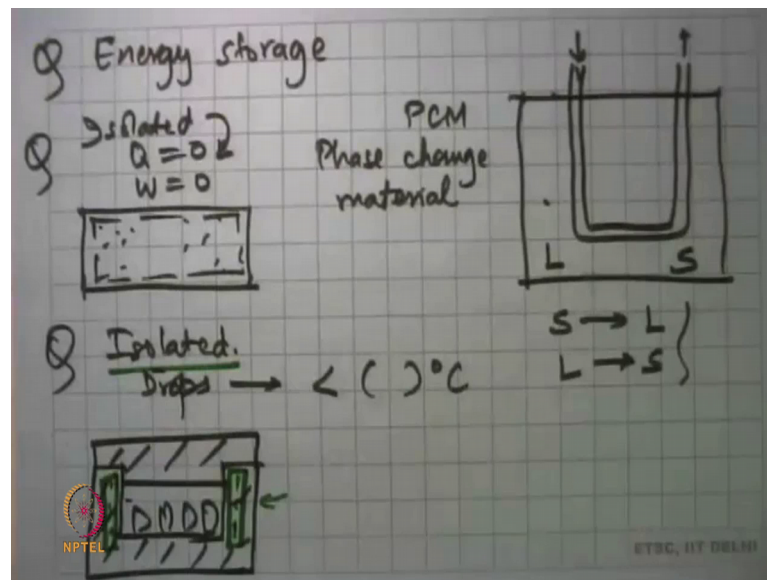 Q Energy storage
Q Isolated
Q = 0
W = 0
PCM
Phase change
material
L S
S → L
L → S
Q Isolated.
Drops → < ( ) °C
NPTEL
ETSC, IIT DELHI